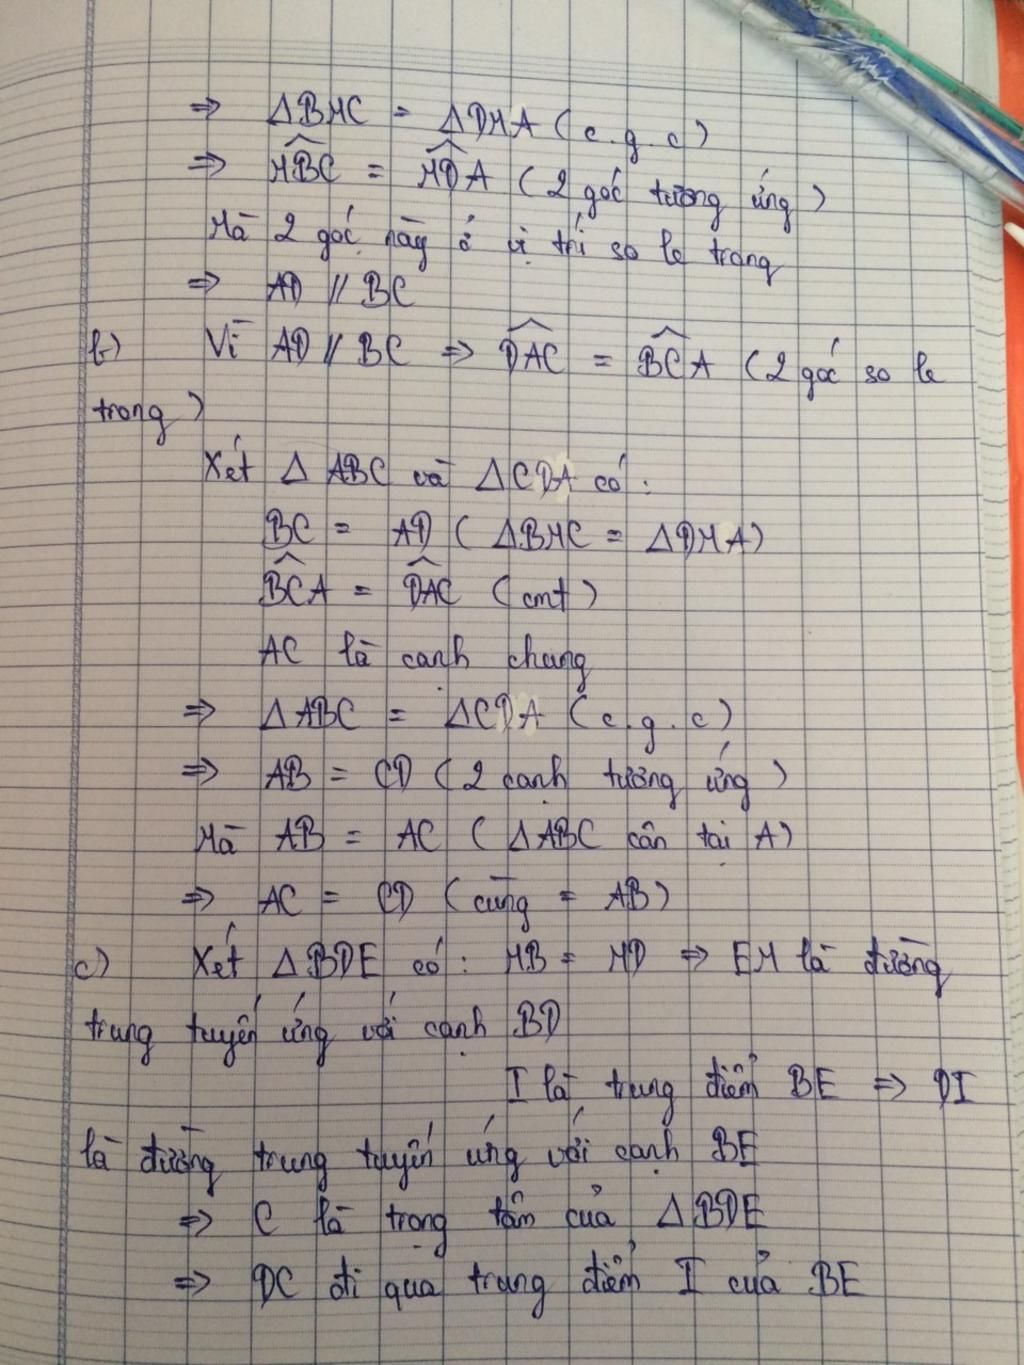 ⇒ ΔBMC = ΔDMA (c.g.c)
⇒ \widehat{MBC} = \widehat{MDA} (2 góc tương ứng)
Mà 2 góc này ở vị trí so le trong
⇒ AD // BC
b) Vì AD // BC ⇒ \widehat{DAC} = \widehat{BCA} (2 góc so le
trong)
Xét Δ ABC và ΔCDA có:
BC = AD (ΔBMC = ΔDMA)
\widehat{BCA} = \widehat{DAC} (cmt)
AC là cạnh chung
⇒ ΔABC = ΔCDA (c.g.c)
⇒ AB = CD (2 cạnh tương ứng)
Mà AB = AC (ΔABC cân tại A)
⇒ AC = CD (cùng = AB)
c) Xét ΔBDE có: MB = MD ⇒ EM là đường
trung tuyến ứng với cạnh BD
I là trung điểm BE ⇒ DI
là đường trung tuyến ứng với cạnh BE
⇒ C là trọng tâm của ΔBDE
⇒ DC đi qua trung điểm I của BE